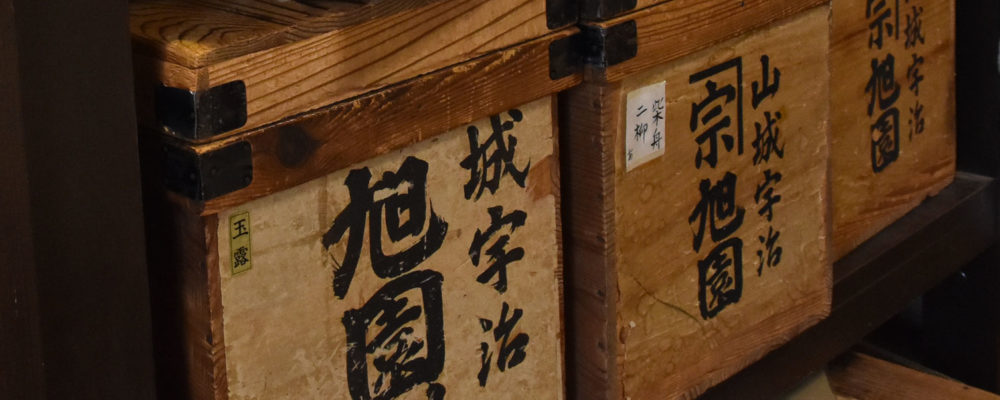 玉露
城宇治
旭園
山城宇治
宗旭園
柴舟
二柳
城宇治
宗旭園